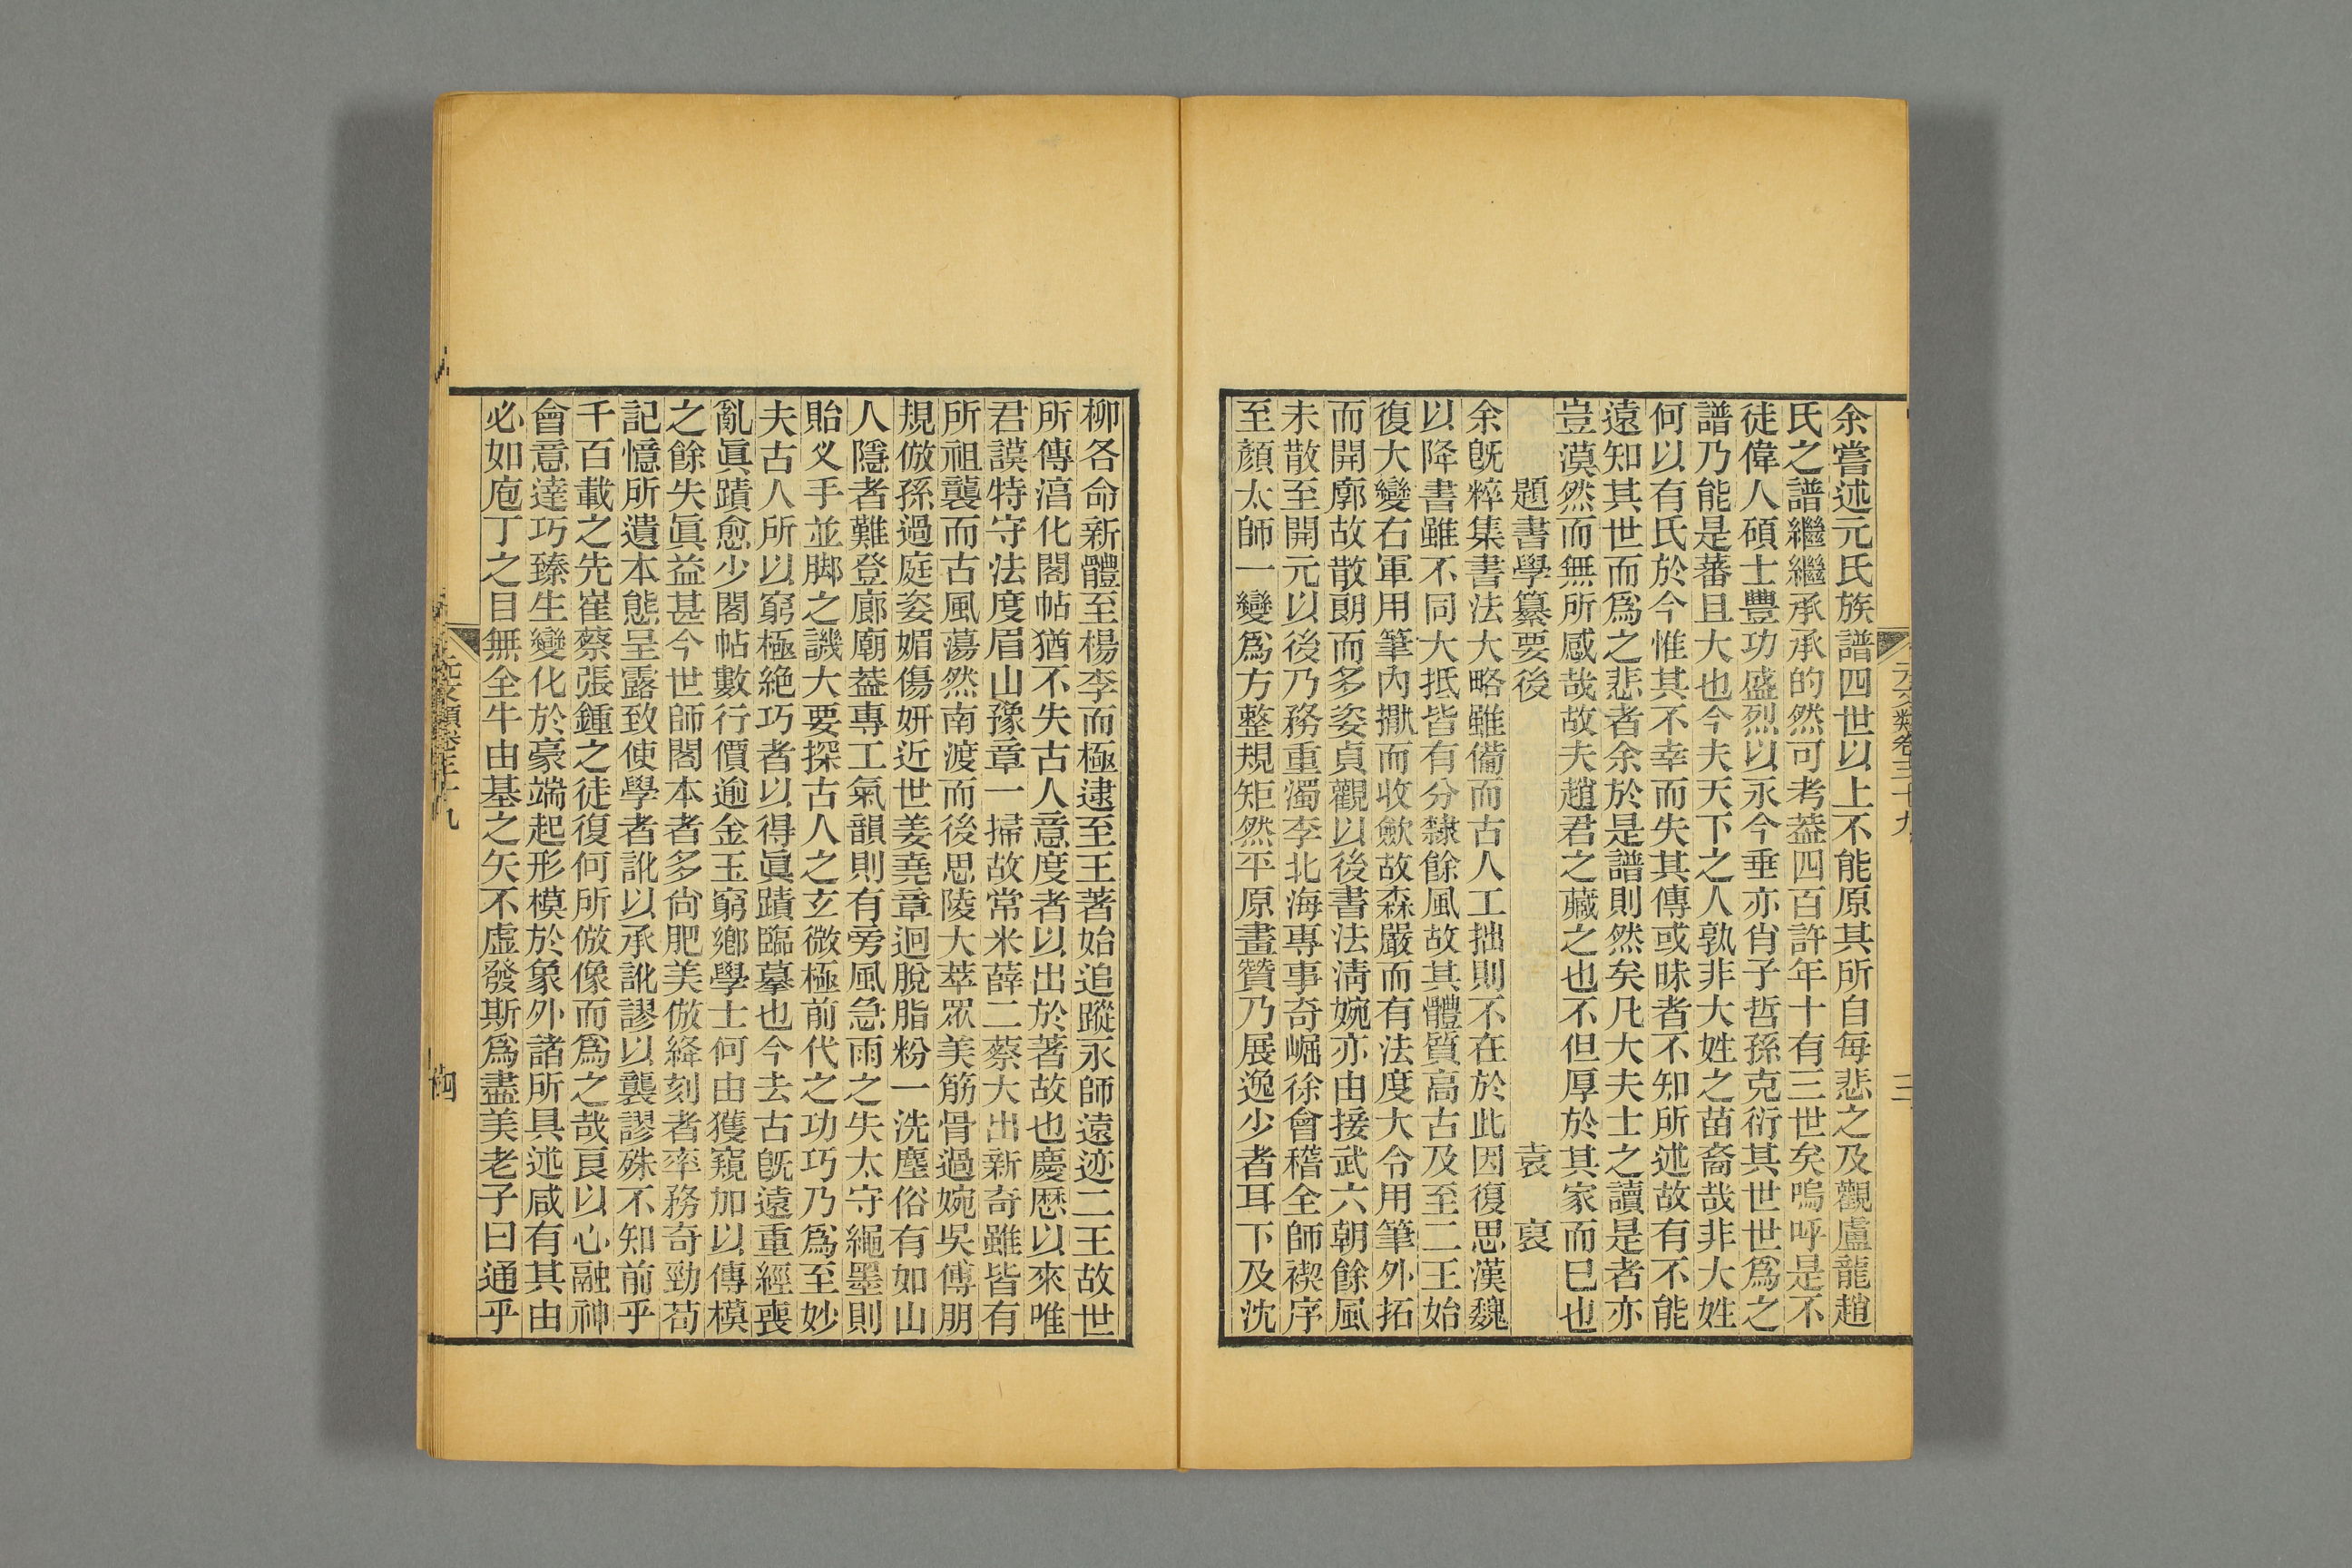 余嘗述元氏族譜四世以上不能原其所自每悲之及觀盧龍趙
氏之譜繼繼承承的然可考葢四百許年十有三世矣嗚呼是不
徒偉人碩士豐功盛烈以永今垂亦肖子哲孫克衍其世世爲之
譜乃能是蕃且大也今夫天下之人孰非大姓之苗裔哉非大姓
何以有氏於今惟其不幸而失其傳或昧者不知所述故有不能
遠知其世而爲之悲者余於是譜則然矣凡大夫士之讀是者亦
豈漠然而無所感哉故夫趙君之藏之也不但厚於其家而巳也
題書學纂要後 袁裒
余旣粹集書法大略雖備而古人工拙則不在於此因復思漢魏
以降書雖不同大抵皆有分隸餘風故其體質高古及至二王始
復大變右軍用筆內擫而收斂故森嚴而有法度大令用筆外拓
而開廓故散朗而多姿貞觀以後書法淸婉亦由接武六朝餘風
未散至開元以後乃務重濁李北海專事奇崛徐會稽全師禊序
至顏太師一變爲方整規矩然平原畫贊乃展逸少者耳下及沈
柳各命新體至楊李而極逮至王著始追蹤永師遠迹二王故世
所傳湻化閣帖猶不失古人意度者以出於著故也慶厯以來唯
君謨特守法度眉山豫章一掃故常米薛二蔡大出新奇雖皆有
所祖襲而古風蕩然南渡而後思陵大萃眾美筋骨過婉吳傅朋
規倣孫過庭姿媚傷妍近世姜堯章迥脫脂粉一洗塵俗有如山
人隱者難登廊廟葢專工氣韻則有旁風急雨之失太守繩墨則
貽义手並脚之譏大要探古人之玄微極前代之功巧乃爲至妙
夫古人所以窮極絶巧者以得眞蹟臨摹也今去古旣遠重經喪
亂眞蹟愈少閣帖數行價逾金玉窮鄕學士何由獲窺加以傳模
之餘失眞益甚今世師閣本者多尙肥美倣絳刻者率務奇勁苟
記憶所遺本態呈露致使學者訛以承訛謬以襲謬殊不知前乎
千百載之先崔蔡張鍾之徒復何所倣像而爲之哉良以心融神
會意達巧臻生變化於豪端起形模於象外諸所具述咸有其由
必如庖丁之目無全牛由基之矢不虛發斯爲盡美老子曰通乎